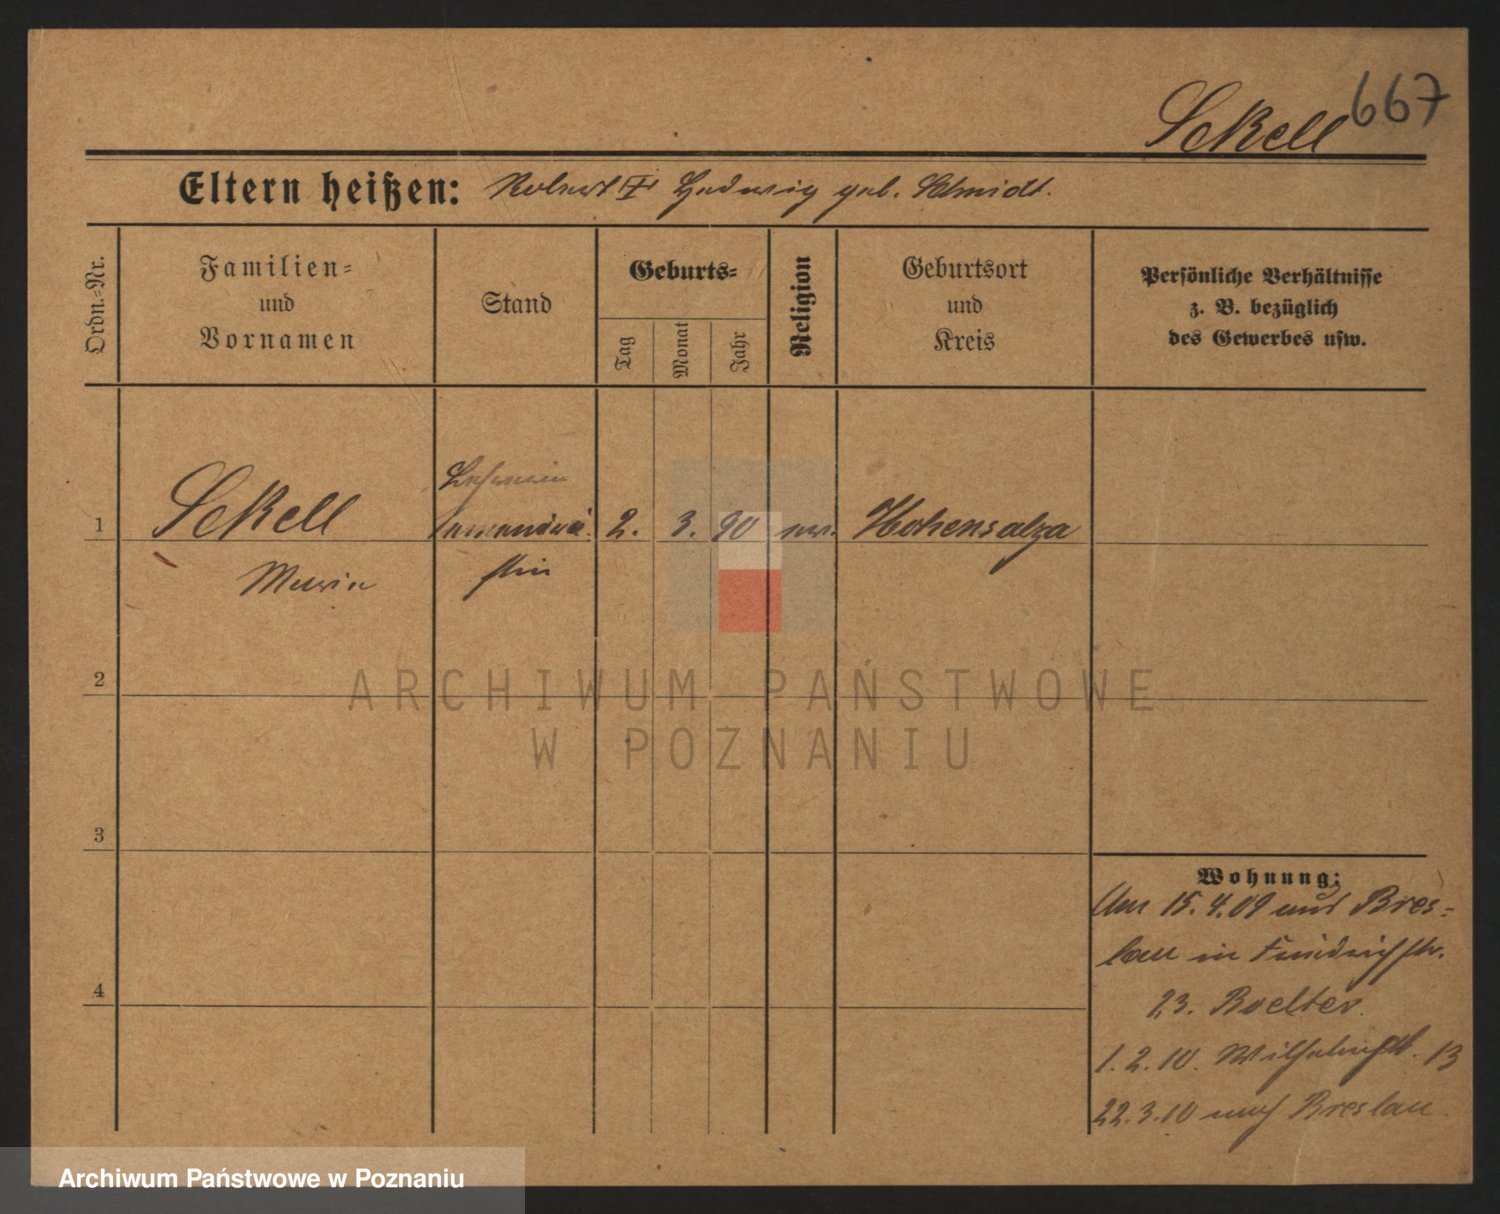 667
Sckell
Eltern heißen: Robert Hedwig geb. Schmidt.
Ordn.-Nr.
Familien-
und
Vornamen
Stand
Geburts-
Tag
Monat
Jahr
Religion
Geburtsort
und
Kreis
Persönliche Verhältnisse
z. B. bezüglich
des Gewerbes usw.
Lehrerin
1 Sckell 2. 3. 90 ev. Hohensalza
stin
2
3
4
Wohnung:
Am 15.4.09 aus Bres-
lau in Friedrichstr.
23. Boelter.
1.2.10. Wilhelmstr. 13
22.3.10 nach Breslau
ARCHIWUM PAŃSTWOWE
W POZNANIU
Archiwum Państwowe w Poznaniu